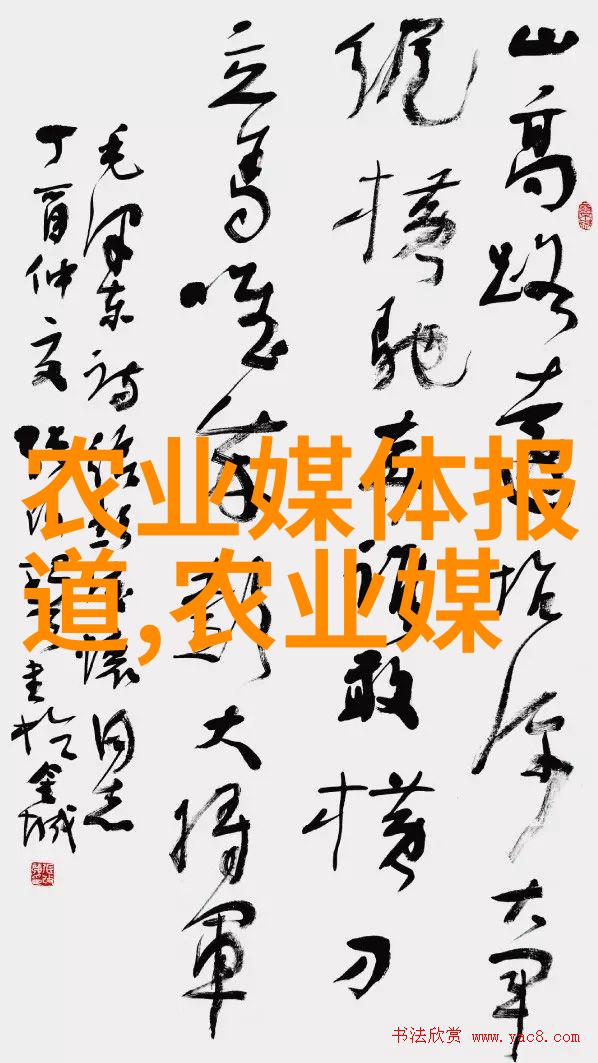 山高路遠坑深大军
纵横驰奔谁敢横刀
立马唯我彭大将軍
毛泽东诗给彭德怀同志
丁酉仲夏书于金城
农业媒体报
道,农业媒
书法欣赏 www.yac8.com